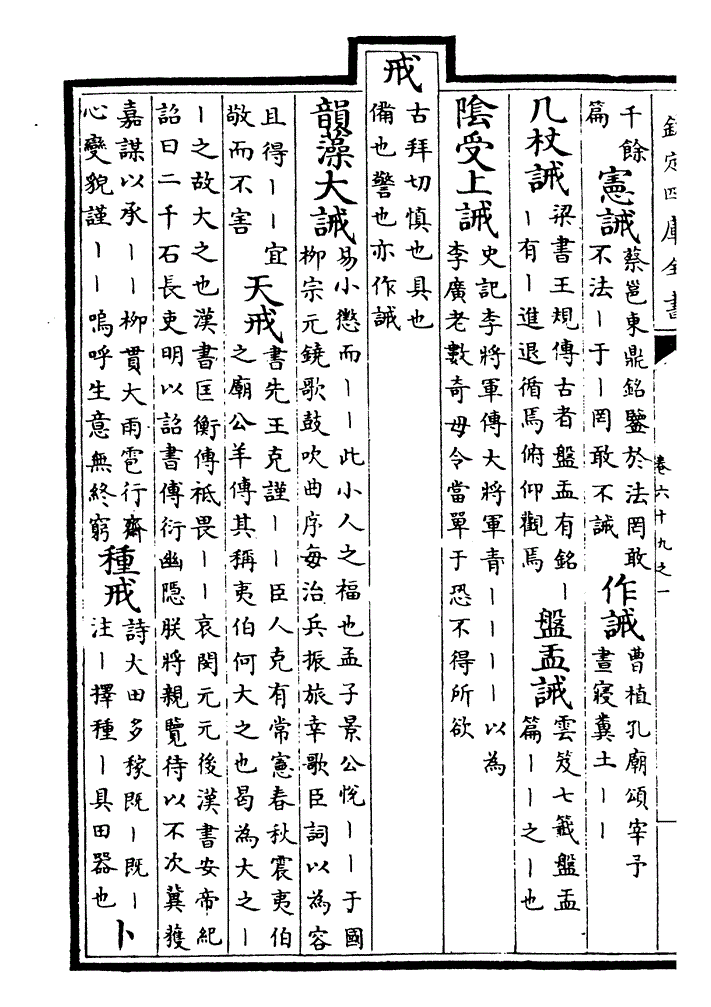 欽定四庫全書
卷六十九之一
千餘
篇
憲誡
蔡邕東鼎銘鑒於法罔敢
不法丨于丨罔敢不誡
作誡
曹植孔廟頌宰予
晝寢糞土丨丨
几杖誡
梁書王規傳古者盤盂有銘丨
丨有丨進退循焉俯仰觀焉
盤盂誡
雲笈七籤盤盂
篇丨丨之丨也
陰受上誡
史記李將軍傳大將軍青丨丨丨丨以為
李廣老數奇毋令當單于恐不得所欲
戒
古拜切慎也具也
備也警也亦作誡
韻藻大誡
易小懲而丨丨此小人之福也孟子景公悅丨丨于國
柳宗元鐃歌鼓吹曲序每治兵振旅幸歌臣詞以為容
且得丨丨宜
敬而不害
天戒
書先王克謹丨丨臣人克有常憲春秋震夷伯
之廟公羊傳其稱夷伯何大之也曷為大之丨
丨之故大之也漢書匡衡傳祗畏丨丨哀閔元元後漢書安帝紀
詔曰二千石長吏明以詔書傳衍幽隱朕將親覽待以不次冀獲
嘉謀以承丨丨柳貫大雨雹行齋
心變貌謹丨丨嗚呼生意無終窮
種戒
詩大田多稼既丨既丨
注丨擇種丨具田器也
卜